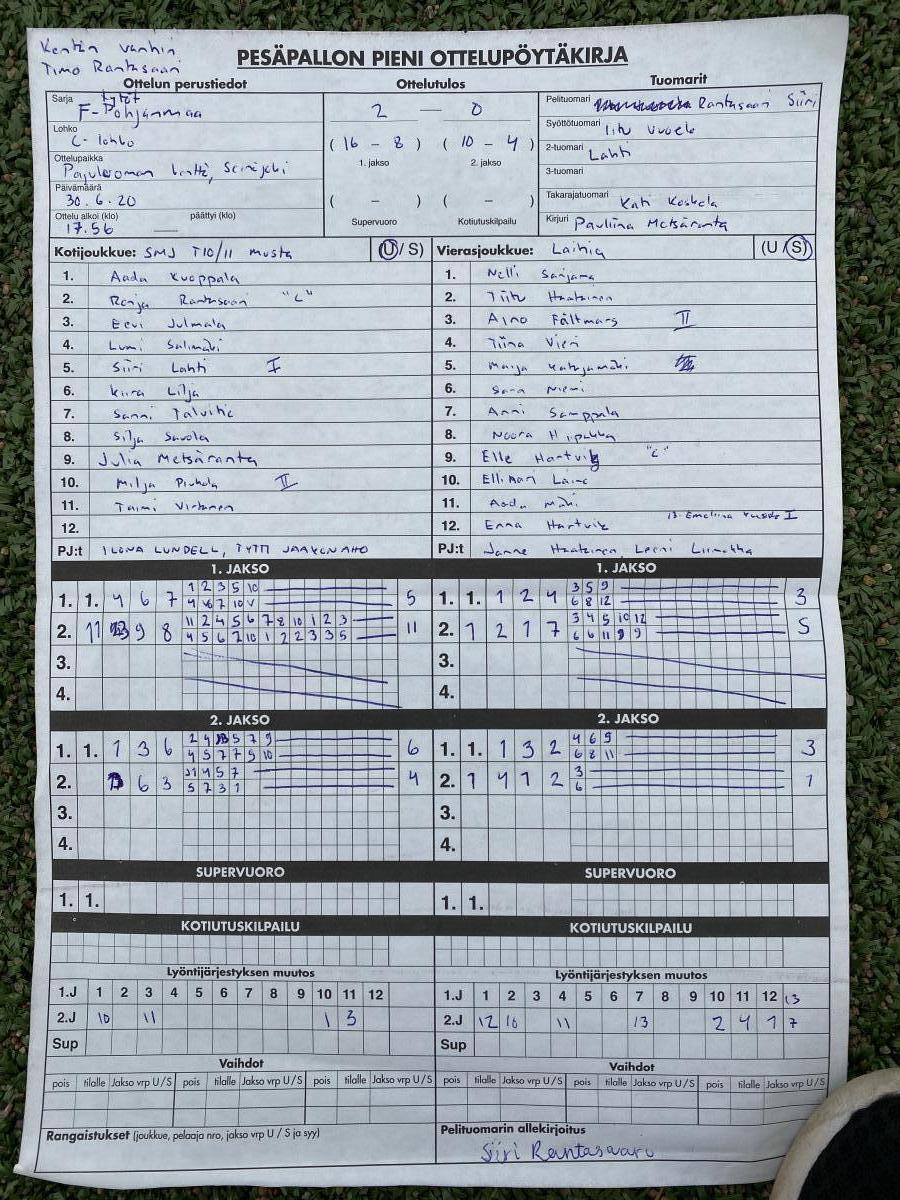 Kentän vanhin
Timo Rantasaari
PESÄPALLON PIENI OTTELUPÖYTÄKIRJA
Ottelun perustiedot
Ottelutulos
Tuomarit
Sarja tytöt
F-Pohjanmaa
Lohko
C-lohko
Ottelupaikka
Seinäjoki
Päivämäärä
30.6.20
Ottelu alkoi (klo) päättyi (klo)
17.56
2 — 0
( 16 - 8 ) ( 10 - 4 )
1. jakso 2. jakso
( - ) ( - )
Supervuoro Kotiutuskilpailu
Pelituomari Rantasaari Siiri
Syöttötuomari Iitu
2-tuomari Lahti
3-tuomari
Takarajatuomari Kati Koskela
Kirjuri Pauliina Metsäranta
Kotijoukkue: SMJ T10/11 musta (U / S)
1. Aada Kuoppala
2. Ronja Rantasaari "C"
3. Eevi Julmala
4. Lumi Salimäki
5. Siiri Lahti I
6. Kiira Lilja
7. Sanni Talvitie
8. Silja Savola
9. Julia Metsäranta
10. Milja Piuhola II
11. Taimi Virtanen
12.
PJ:t ILONA LUNDELL, TYTTI JAAKONAHO
Vierasjoukkue: Laihia (U / S)
1. Nelli Sarjama
2. Tiitu Haatainen
3. Aino Fältmars II
4. Tiina Vieri
5. Maija
6. Sara Niemi
7. Anni Samppala
8. Noora Hipakka
9. Elle Hartvik "C"
10. Elli Mari Laine
11. Aada Mäki
12. Enna Hartvik 13. Emeliina I
PJ:t Janne Haatainen, Leeni
1. JAKSO
1. 1. 4 6 7 1 2 3 5 10 5
4 6 7 10 V
2. 11 9 8 11 2 4 5 6 7 8 10 1 2 3 11
4 5 6 7 10 1 2 2 3 3 5
3.
4.
1. JAKSO
1. 1. 1 2 4 3 5 9 3
6 8 12
2. 1 2 1 7 3 4 5 10 12 5
6 6 11 9 9
3.
4.
2. JAKSO
1. 1. 1 3 6 2 4 5 7 9 6
4 5 7 7 9 10
2. 6 3 11 4 5 7 4
5 7 3 1
3.
4.
2. JAKSO
1. 1. 1 3 2 4 6 9 3
6 8 11
2. 1 4 1 2 3 1
6
3.
4.
SUPERVUORO
1. 1.
SUPERVUORO
1. 1.
KOTIUTUSKILPAILU
KOTIUTUSKILPAILU
Lyöntijärjestyksen muutos
1.J 1 2 3 4 5 6 7 8 9 10 11 12
2.J 10 11 1 3
Sup
Lyöntijärjestyksen muutos
1.J 1 2 3 4 5 6 7 8 9 10 11 12 13
2.J 12 10 11 13 2 4 1 7
Sup
Vaihdot
pois tilalle Jakso vrp U / S pois tilalle Jakso vrp U / S pois tilalle Jakso vrp U / S
Vaihdot
pois tilalle Jakso vrp U / S pois tilalle Jakso vrp U / S pois tilalle Jakso vrp U / S
Rangaistukset (joukkue, pelaaja nro, jakso vrp U / S ja syy)
Pelituomarin allekirjoitus
Siiri Rantasaari